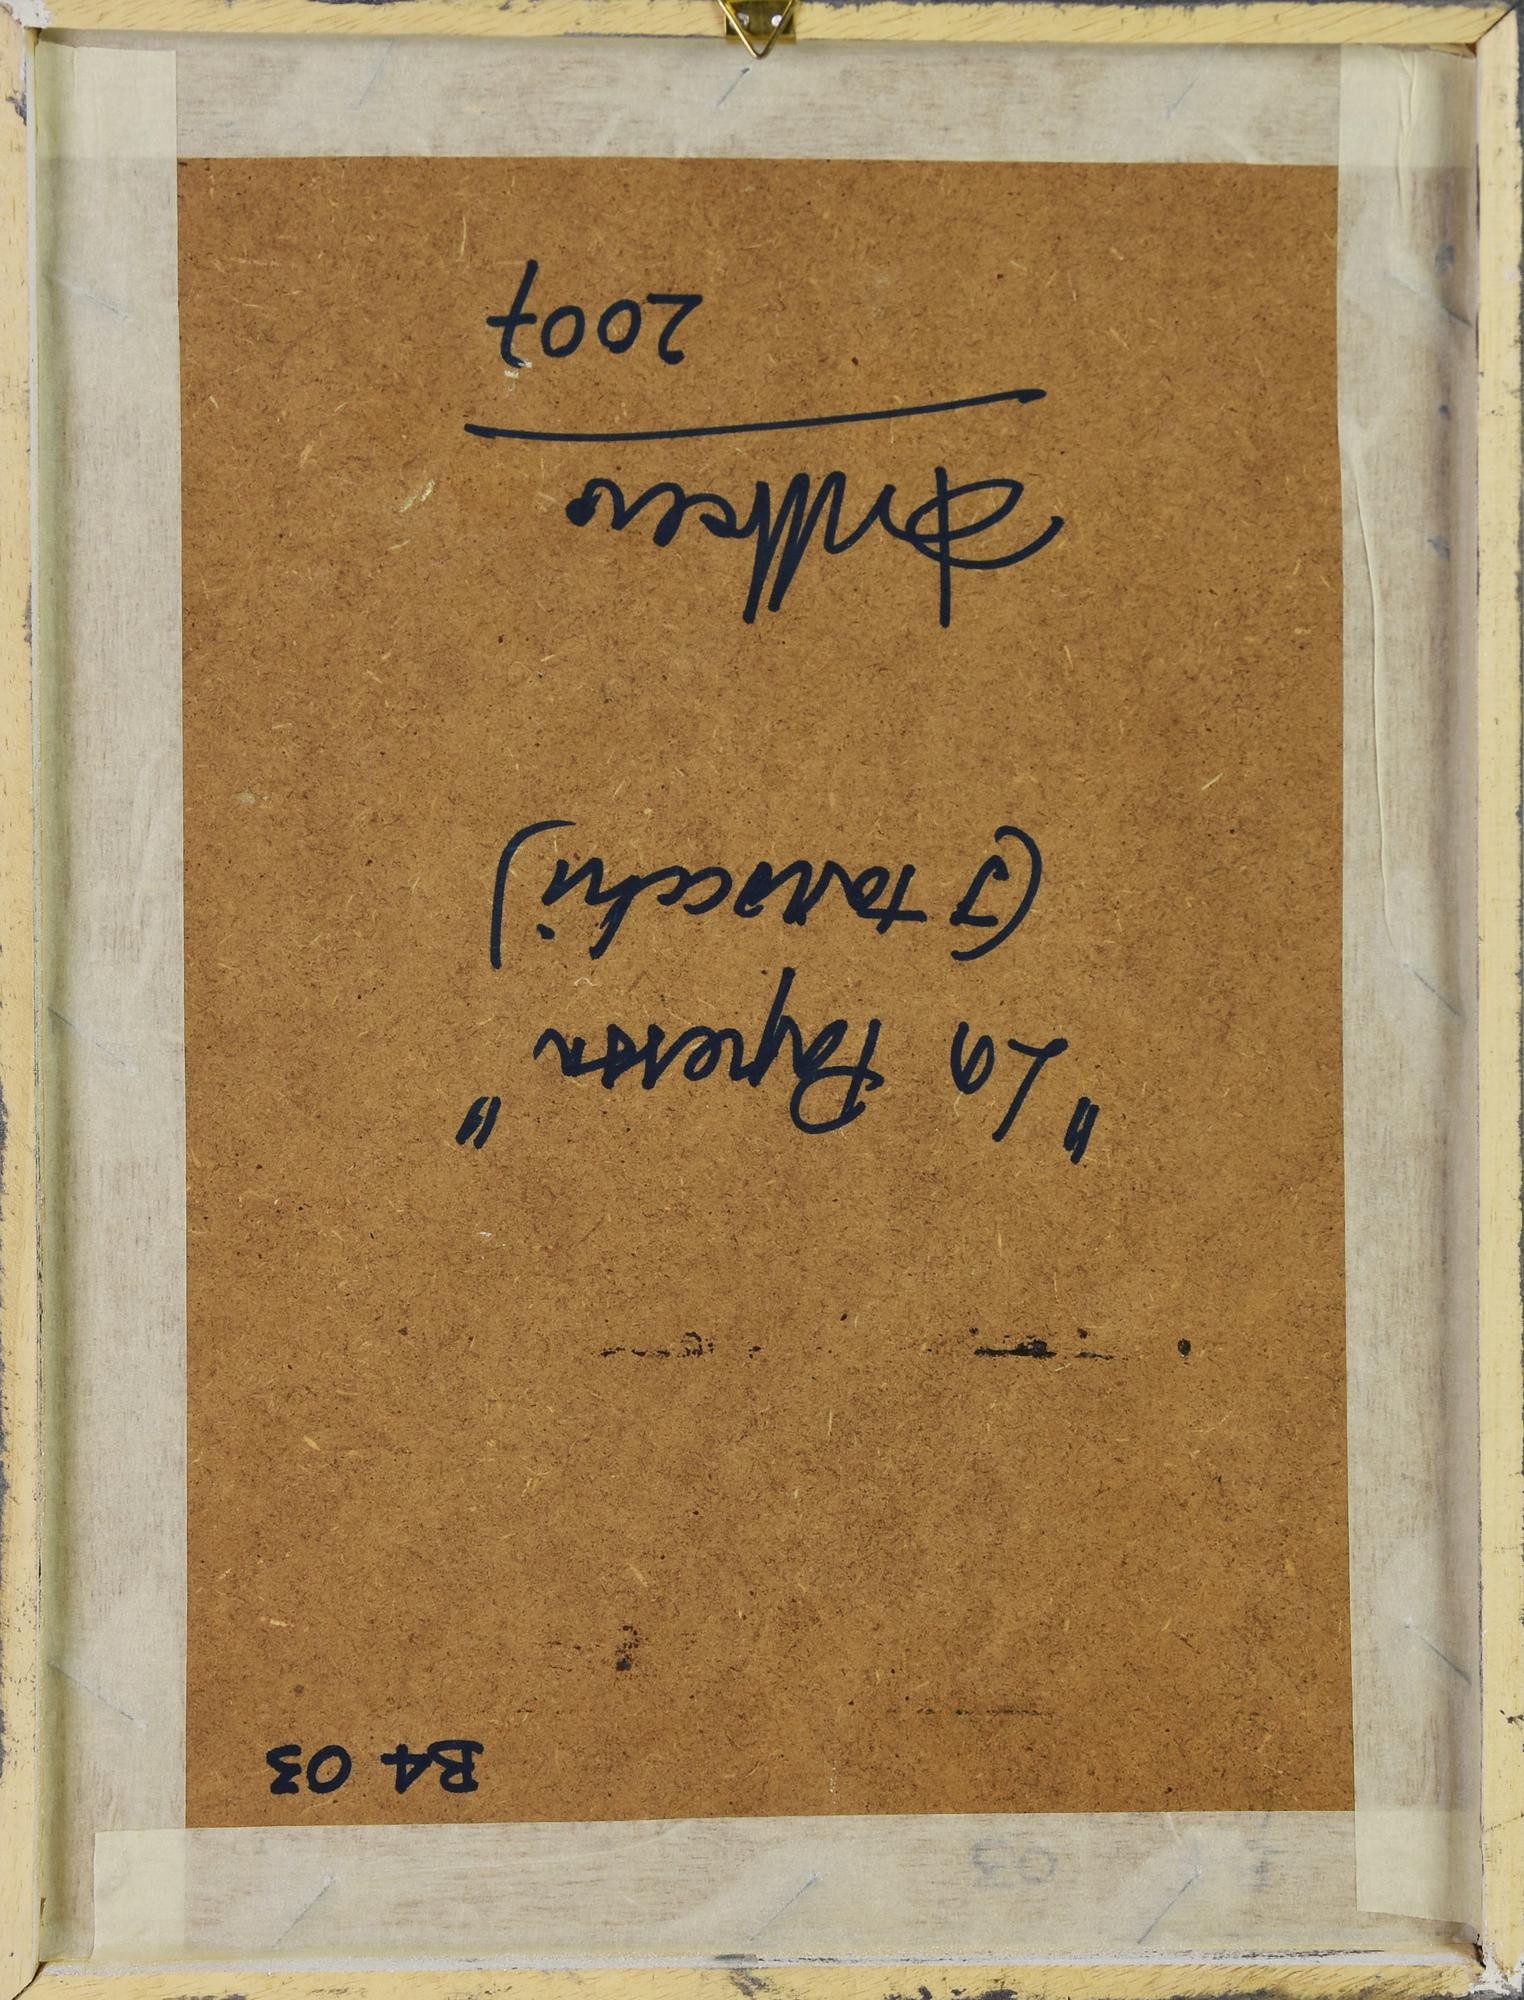 B4 03
"La Papessa"
(I tarocchi)
2007